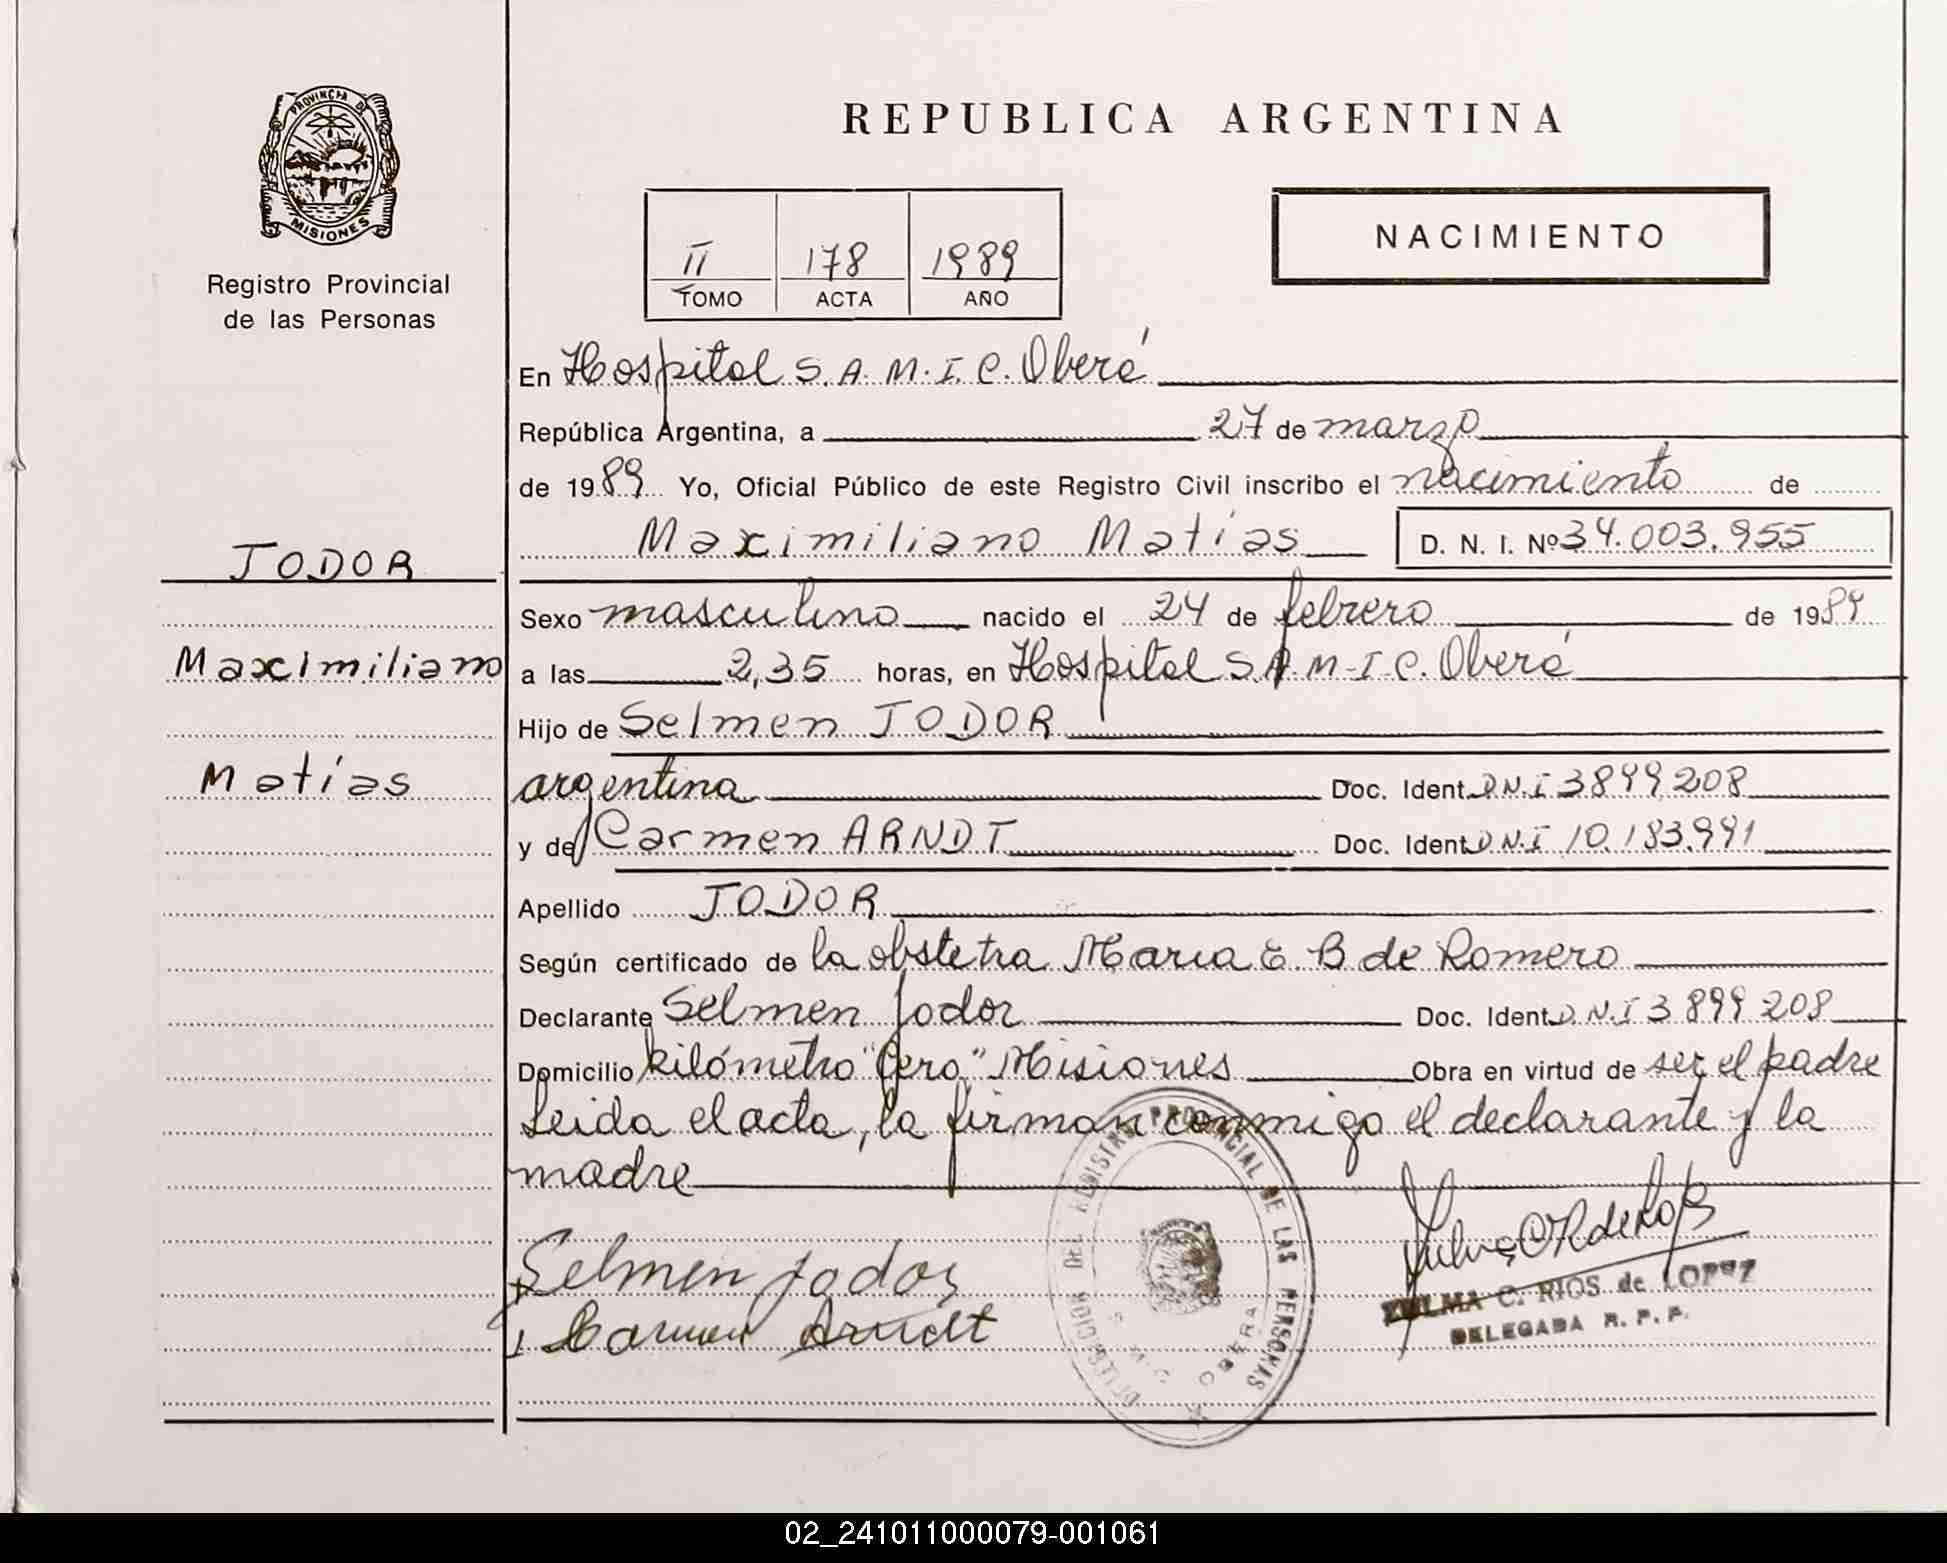 PROVINCIA DE
MISIONES
Registro Provincial
de las Personas
REPUBLICA ARGENTINA
II 178 1989
TOMO ACTA AÑO
NACIMIENTO
En Hospital S.A.M.I.C. Oberá
República Argentina, a 27 de marzo
de 1989 Yo, Oficial Público de este Registro Civil inscribo el nacimiento de
Maximiliano Matías D. N. I. Nº 34.003.955
JODOR
Maximiliano
Matías
Sexo masculino nacido el 24 de febrero de 1989
a las 2,35 horas, en Hospital S.A.M.I.C. Oberá
Hijo de Selmen JODOR
argentina Doc. Ident. D.N.I 3899208
y de Carmen ARNDT Doc. Ident. D.N.I 10.183.991
Apellido JODOR
Según certificado de la obstetra Maria E. B de Romero
Declarante Selmen Jodor Doc. Ident. D.N.I 3 899 208
Domicilio kilómetro "Cero" Misiones Obra en virtud de ser el padre
Leida el acta, la firman conmigo el declarante y la
madre
Selmen Jodor
Carmen Arndt
DEL REGISTRO PROVINCIAL DE LAS PERSONAS
OBERA
C. RIOS de LOPEZ
DELEGADA R. P. P.
02_241011000079-001061